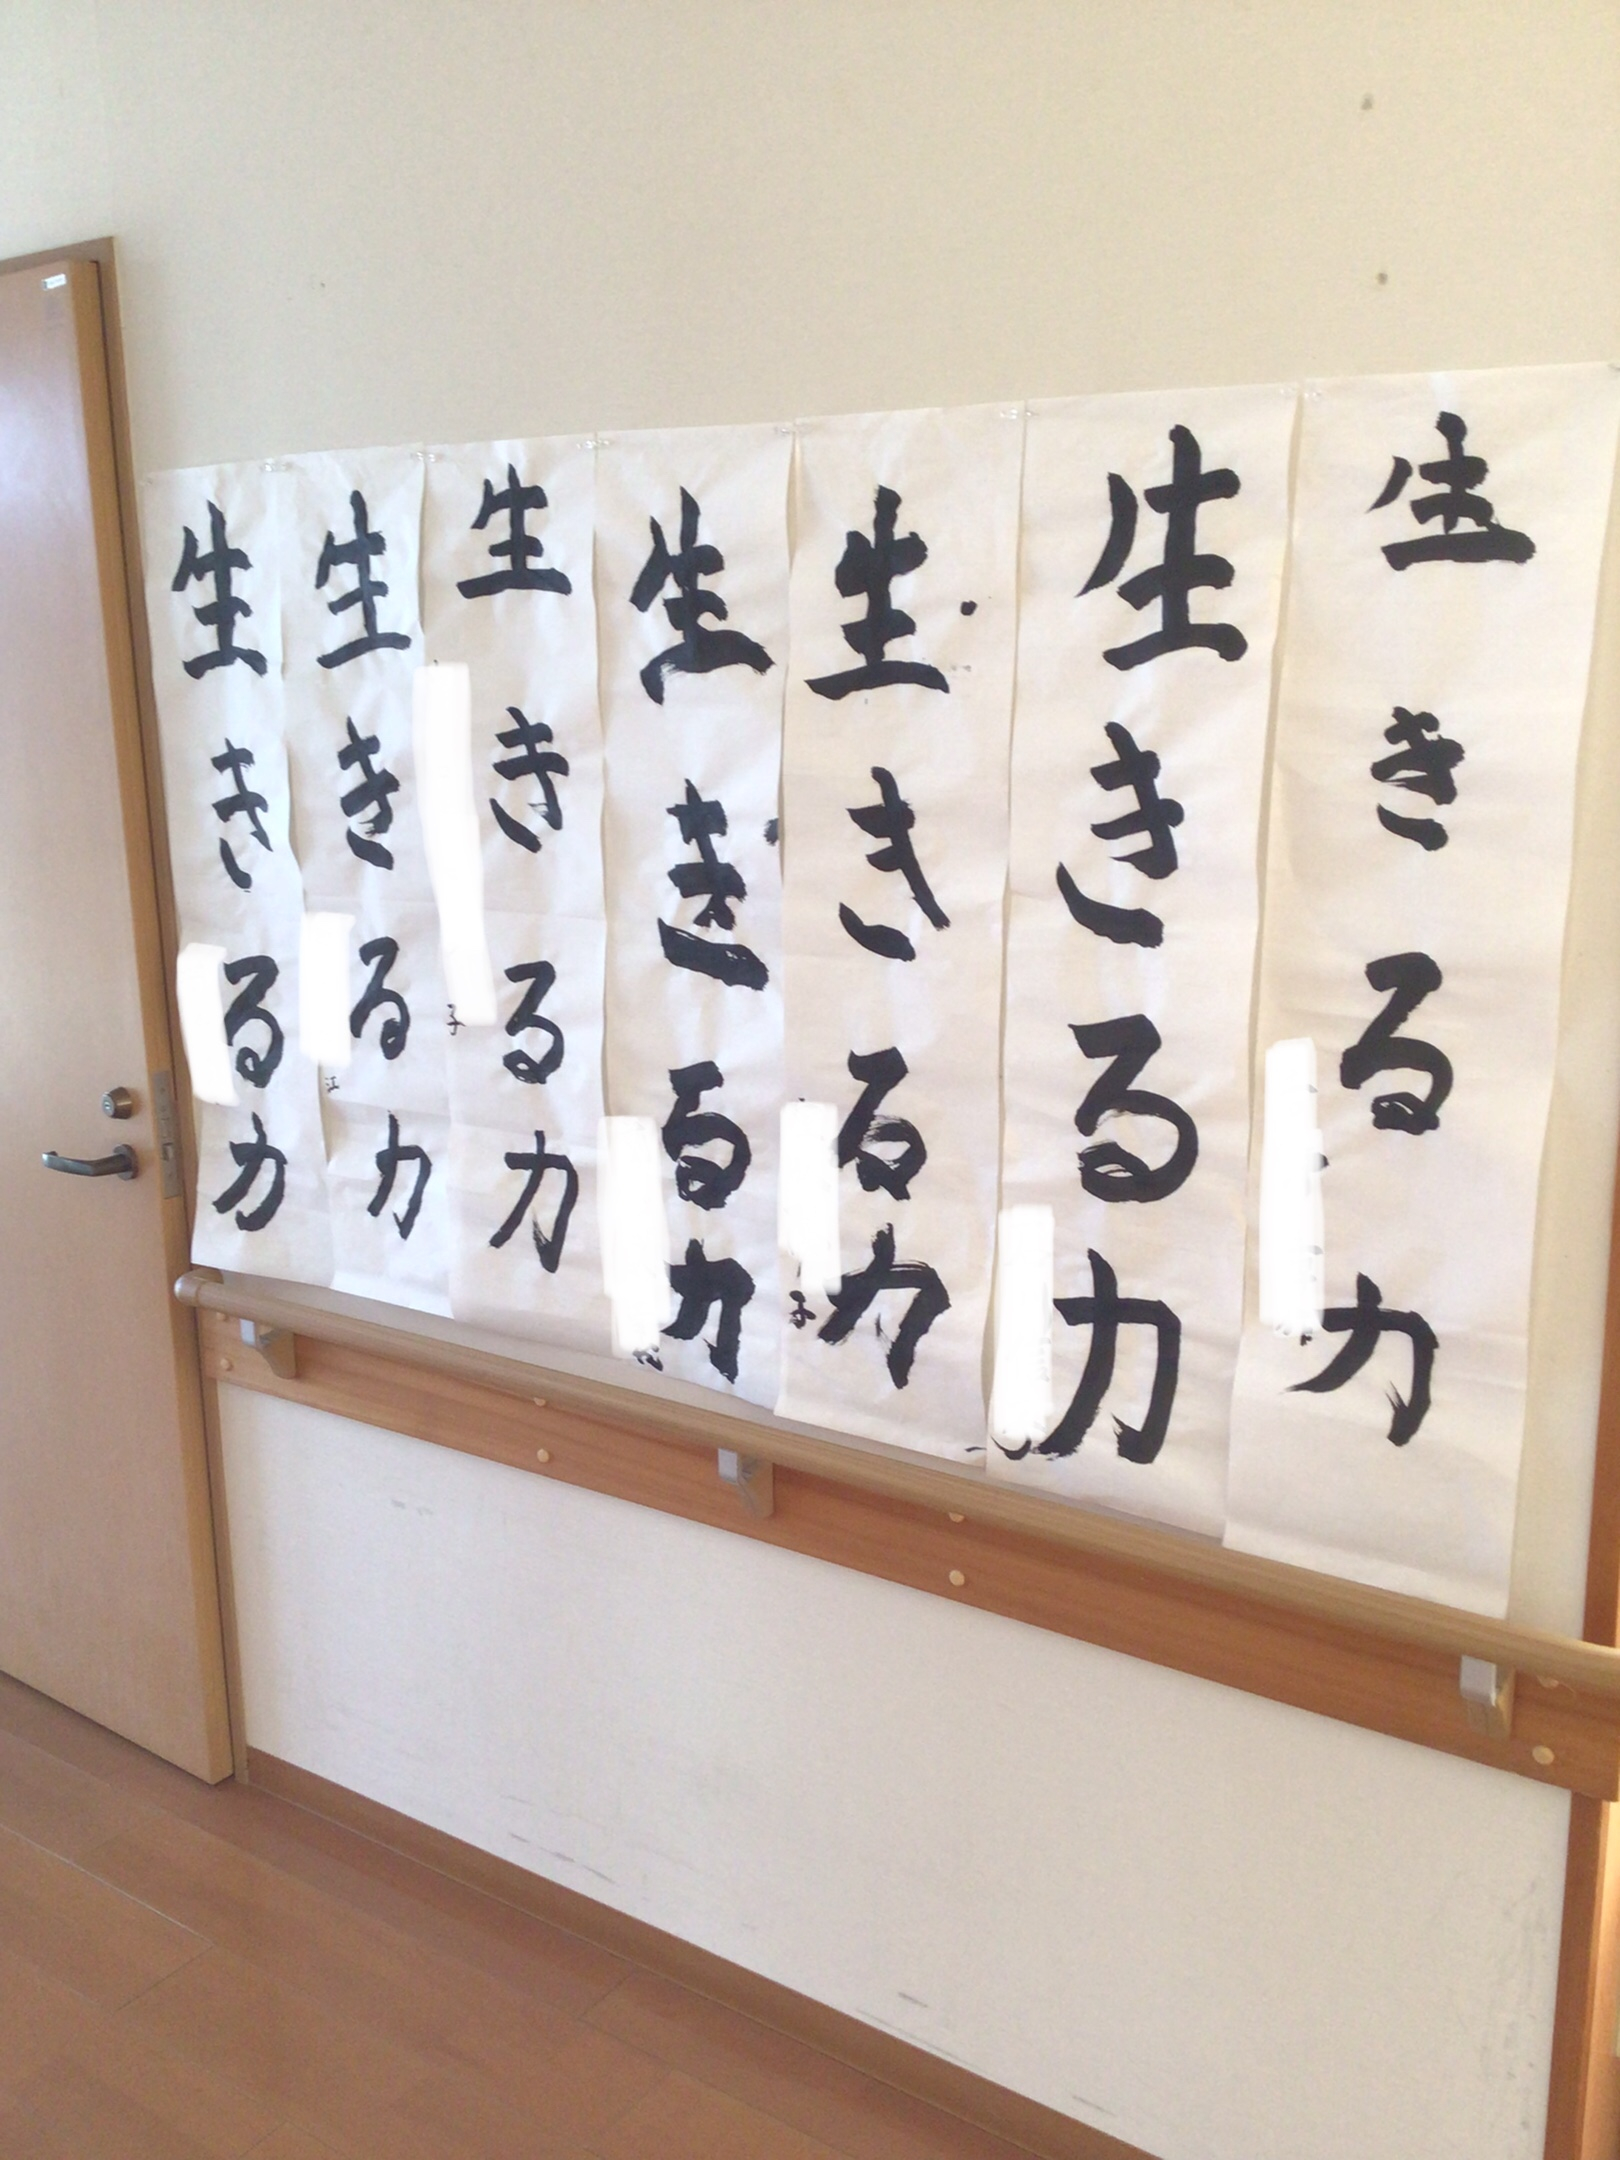 生きる力
生きる力
生きる力
子
生きる力
江
生きる力
子
生きる力
生きる力